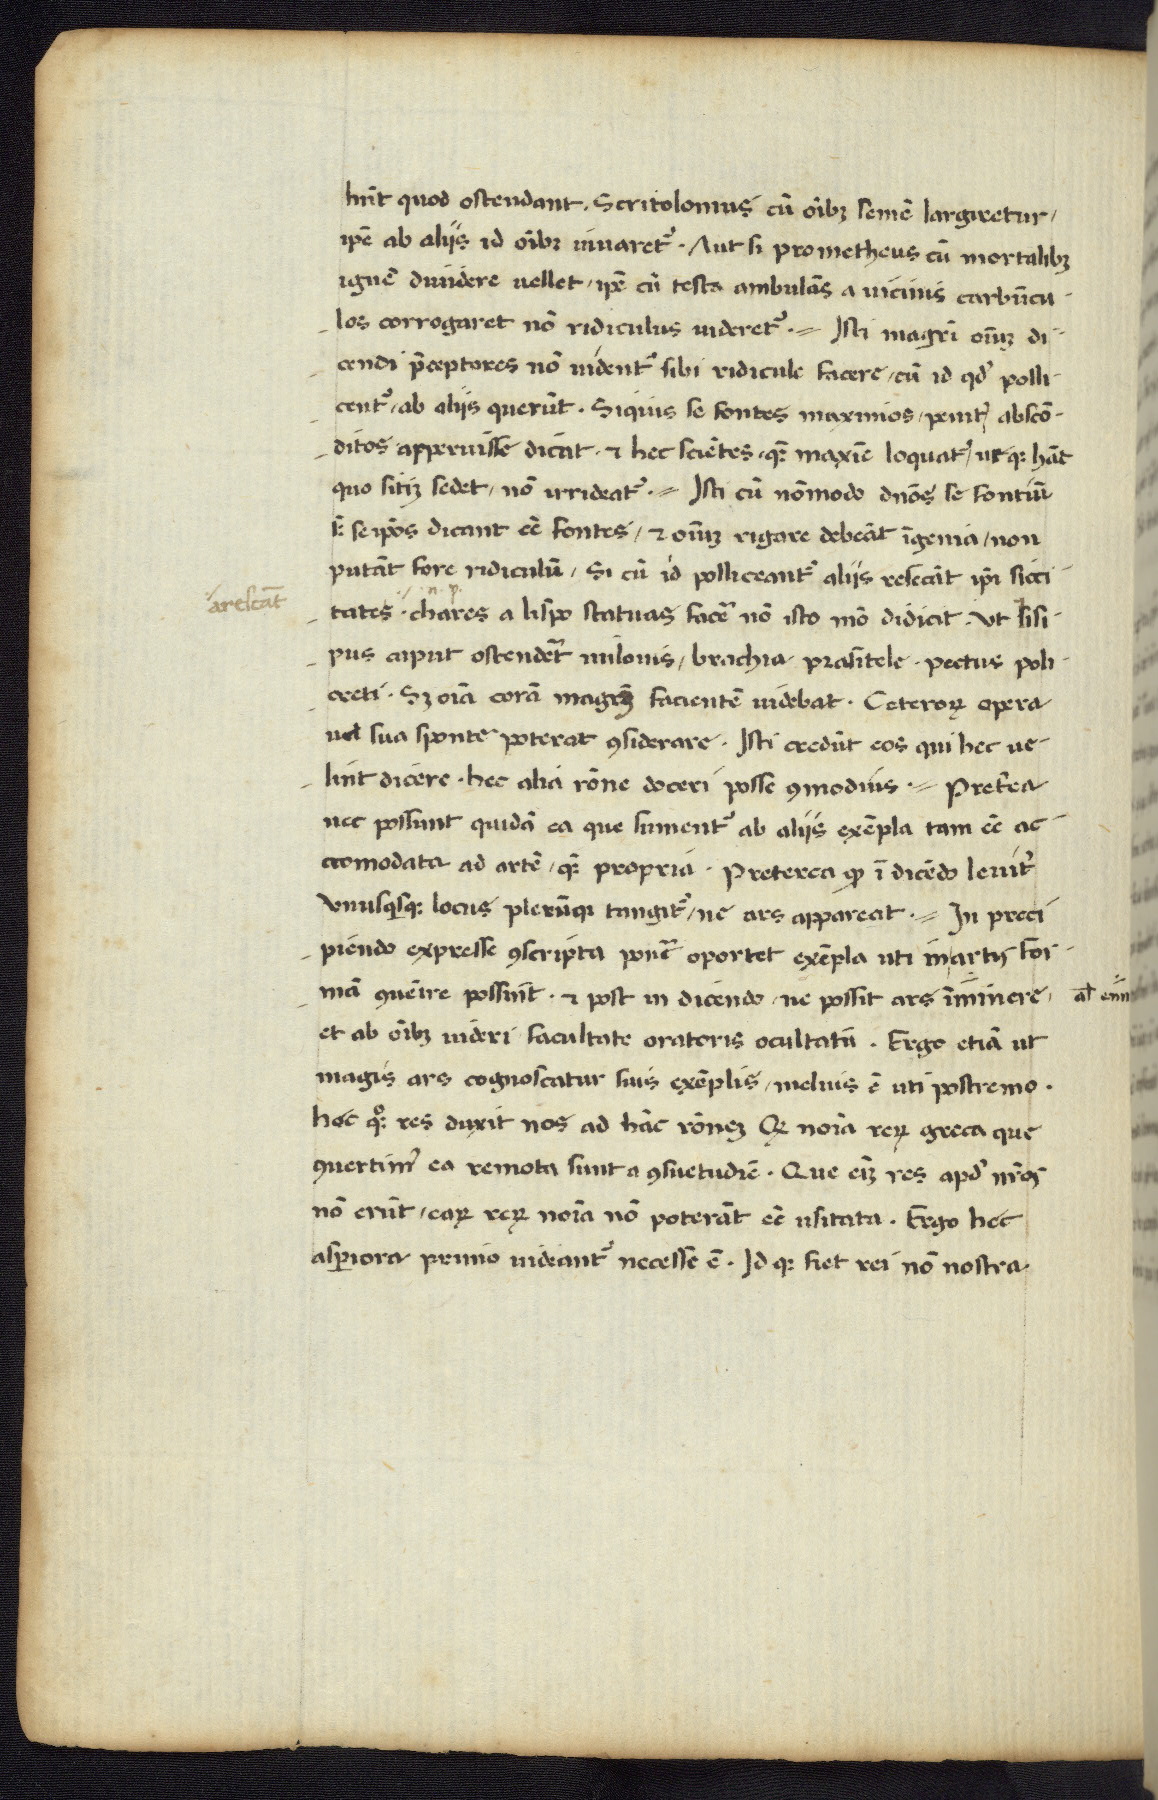 hn̄t quod ostendant. Scritolomus cū oībꝫ semē largiretur/
ipē ab aliis id oībꝫ iuuaretᷣ. Aut si prometheus cū mortalibꝫ
ignē diuidere uellet/ ipē cū testa ambulās a uicinis carbūcu-
los corrogaret nō ridiculus uideretᷣ.= Isti magrī oīuꝫ di-
cendi p̄ceptores nō uidentᷣ sibi ridicule facere/ cū id qd̄ polli-
centᷣ/ ab aliis querūt. Siquis se fontes maximos/ penitᷣ abscō-
ditos apperuisse dicat. & hec sciētes. qꝫ maxīe loquatᷣ/ utqꝫ hāt
quo sitiꝫ sedet/ nō irrideatᷣ.= Isti cū nōmodo dn̄os se fontiū
sꝫ seipōs dicant eē fontes/ & oīuꝫ rigare debeāt īgenia/ non
putāt fore ridiculū/ Si cū id polliceantᷣ aliis resecāt ipī sicci-
arescāt
tates. chares a lispo statuas facē nō isto mō didicit. Ut lisi-
pus caput ostendet̄ milonis/ brachia prasitele. pectus poli-
cceti. Sꝫ oīa corā magrꝫ facientē uidebat. Ceteroꝝ opera
uel sua sponte poterat ꝯsiderare. Isti credūt eos qui hec ue-
lint dicere. hec alia rōne doceri posse ꝯmodius.= Pretea
nec possunt quidā ea que sumentᷣ ab aliis exēpla tam eē ac-
comodata ad artē/ qꝫ propria. Preterea ꝙ ī dicēdo leuitᷣ
Vnusqsqꝫ locus plerūqꝫ tangitᷣ/ ne ars appareat.= In preci
piendo expresse ꝯscripta pone᷑ oportet exēpla uti inartis for-
mā ꝯuēire possint. & post in dicendo/ ne possit ars īminere/
al̄ emi
et ab oībꝫ uideri facultate oratoris ocultatū. Ergo etiā ut
magis ars cognoscatur suis exēplis/ melius ē uti postremo.
hoc qꝫ res duxit nos ad hāc rōneꝫ Qꝫ noīa reꝝ greca que
ꝯuertimᷣ ea remota sunt a ꝯsuetudīe. Que eīꝫ res apd̄ nr̄os
nō erūt/ eaꝝ reꝝ noīa nō poterāt eē usitata. Ergo hec
asꝑiora primo uideantᷣ necesse ē. Id qꝫ fiet rei nō nostra.